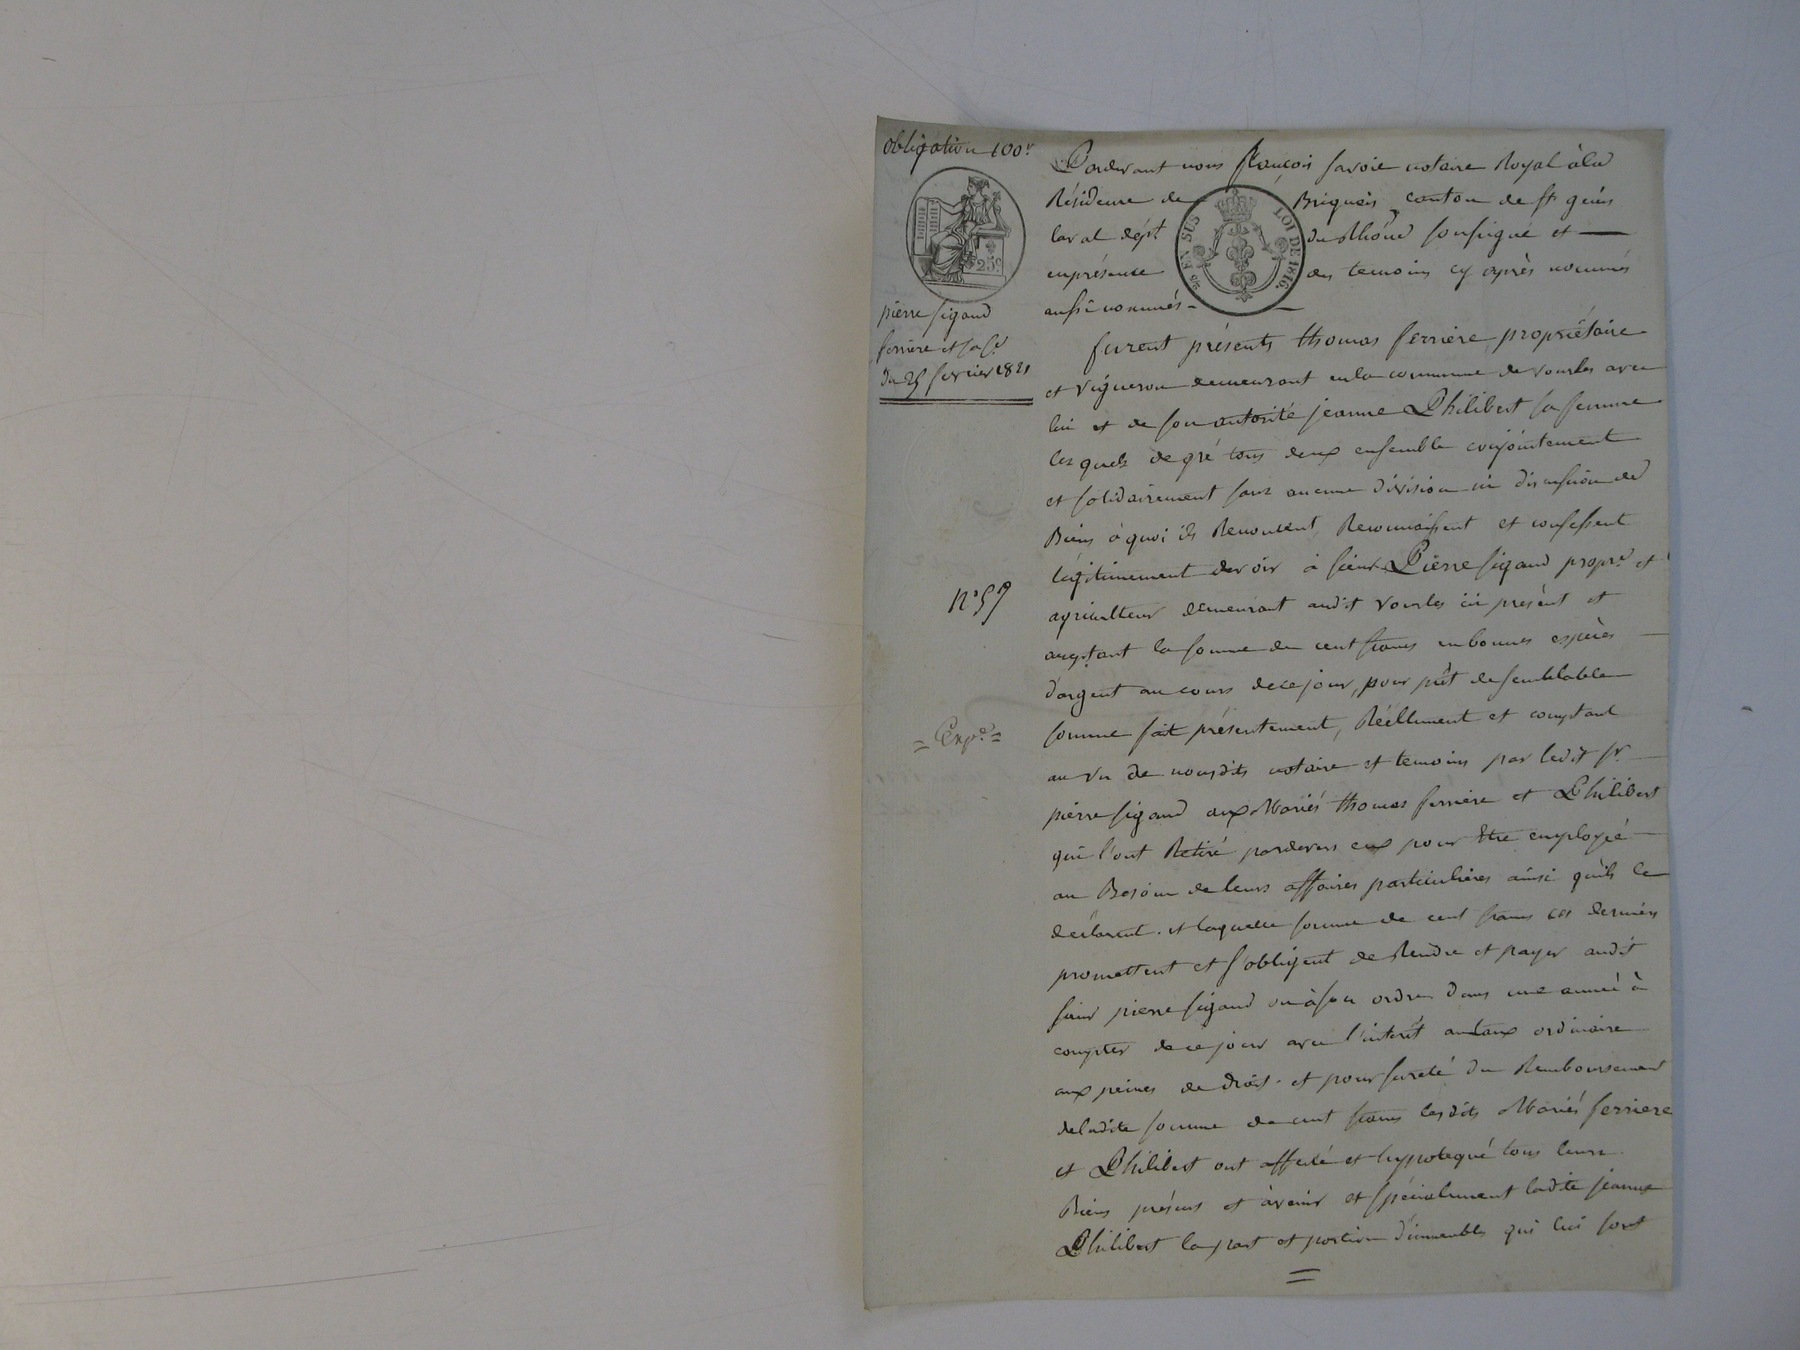 obligation 100fr
25c
pierre sigaud
ferriere et sa fe
du 25 fevrier 1821
n° 59
= Expé =
Pardevant nous françois savoie notaire Royal à la
Résidence de Briguais canton de st genis
laval dépt du Rhône soussigné et
en présence des temoins cy après nommés
aussi nommés -
2/5 EN SUS LOI DE 1816.
furent présents thomas ferriere, propriétaire
et vigneron demeurant en la commune de vourles avec
lui et de son autorité jeanne Philibert sa femme
lesquels de gré tous deux ensemble conjointement
et solidairement sans aucune division ni discussion de
Biens à quoi ils Renoncent, Reconnaissent et confessent
légitimement devoir à sieur Pierre sigaud propre et
agriculteur demeurant audit vourles ici présent et
acceptant la somme de cent francs en bonnes espèces
d'argent au cours de ce jour, pour prêt de semblable
somme fait présentement, Réellement et comptant
au vu de nousdits notaire et temoins par ledit sr
pierre sigaud aux Mariés thomas ferriere et Philibert
qui l'ont Retiré pardevers eux pour être employé
au Besoin de leurs affaires particulières ainsi qu'ils le
déclarent. et laquelle somme de cent francs ces derniers
promettent et s'obligent de Rendre et payer audit
sieur pierre sigaud ou à son ordre dans une année à
compter de ce jour avec l'intérêt au taux ordinaire
aux peines de droit. et pour sureté du Remboursement
de ladite somme de cent francs lesdits Mariés ferriere
et Philibert ont affecté et hypotequé tous leurs
Biens présens et àvenir et spécialement ladite jeanne
Philibert la part et portion d'immeubles qui lui sont